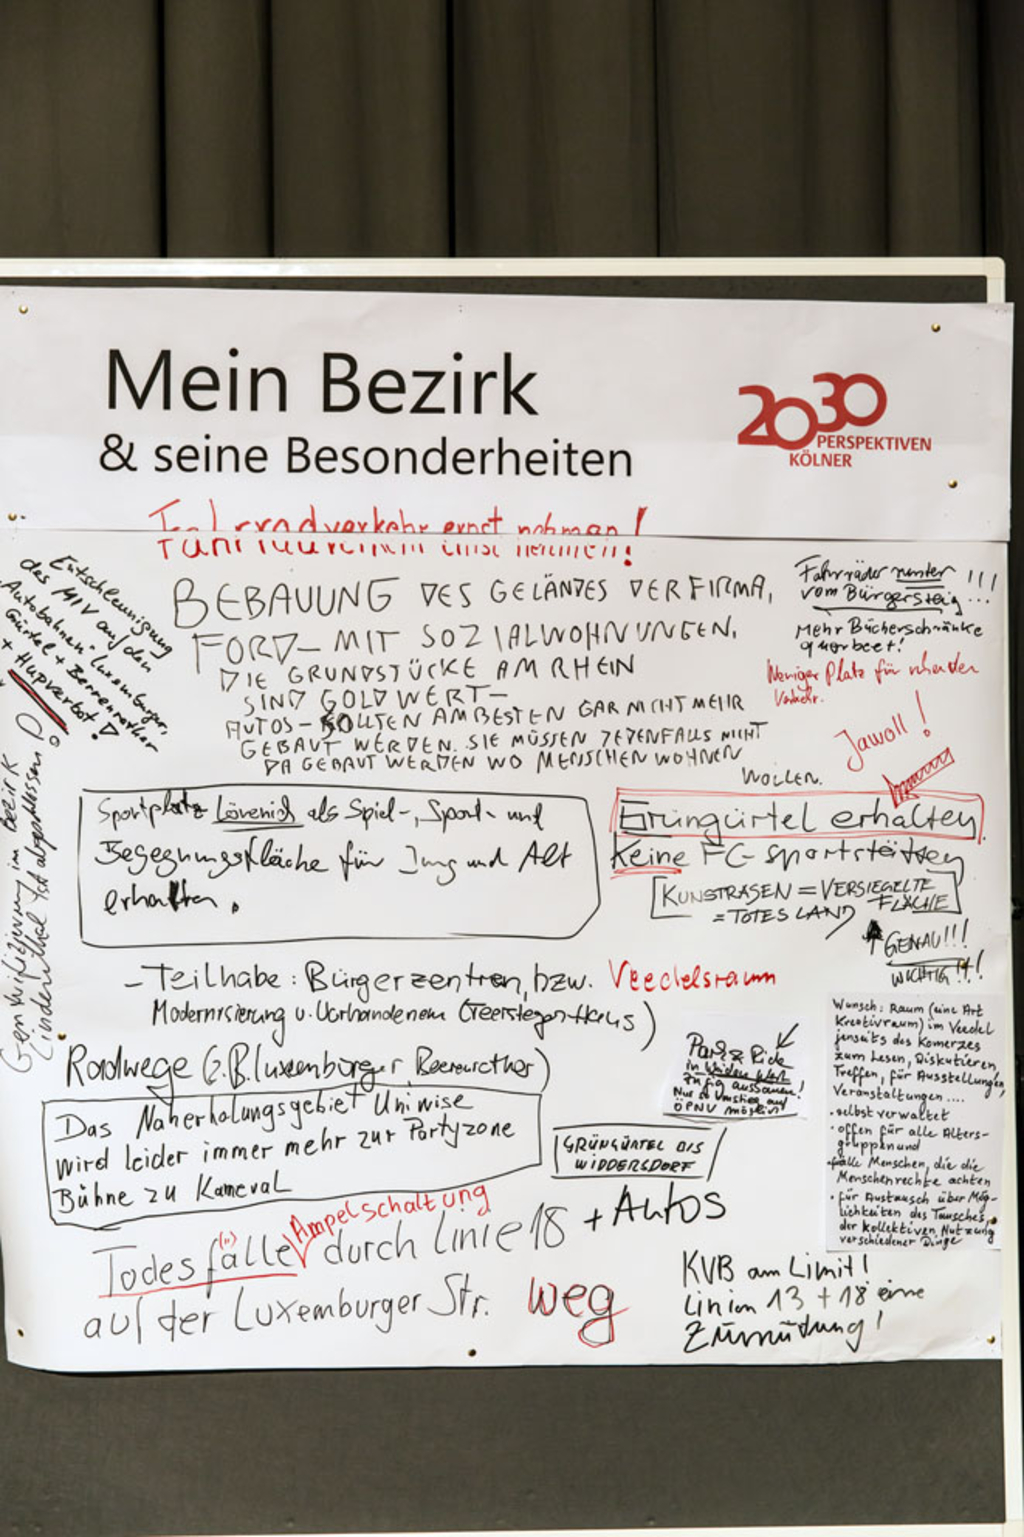 Mein Bezirk
& seine Besonderheiten
2030
PERSPEKTIVEN
KÖLNER
Fahrradverkehr ernst nehmen!
Entschleunigung
des MIV auf den
Autobahnen-Luxemburger,
Gürtel + Berrenrather
+ Hupverbot!
Gentrifizierung im Bezirk
Lindenthal ist abgeschlossen
BEBAUUNG DES GELÄNDES DER FIRMA,
FORD– MIT SOZIALWOHNUNGEN.
DIE GRUNDSTÜCKE AM RHEIN
SIND GOLD WERT–
AUTOS – SOLLTEN AM BESTEN GAR NICHT MEHR
GEBAUT WERDEN. SIE MÜSSEN JEDENFALLS NICHT
DA GEBAUT WERDEN WO MENSCHEN WOHNEN
WOLLEN.
Fahrräder runter !!!
vom Bürgersteig...
Mehr Bücherschränke
querbeet!
Weniger Platz für ruhenden
Verkehr.
Jawoll!
Sportplatz Lövenich als Spiel-, Sport- und
Begegnungsfläche für Jung und Alt
erhalten.
Grüngürtel erhalten
Keine FC-Sportstätten
KUNSTRASEN = VERSIEGELTE
FLÄCHE
= TOTES LAND
GENAU!!!
WICHTIG!!!
– Teilhabe: Bürgerzentren, bzw. Veedelsraum
Modernisierung v. Vorhandenem (Teersteegen-Haus)
Radwege (z.B. Luxemburger, Berrenrather)
Park & Ride
in Weiden West
zügig ausbauen!
Nur so Umstieg auf
ÖPNV möglich!
Wunsch: Raum (eine Art
Kreativraum) im Veedel
jenseits des Komerzes
zum Lesen, Diskutieren,
Treffen, für Ausstellungen,
Veranstaltungen....
• selbstverwaltet
• offen für alle Alters-
gruppen und
• alle Menschen, die die
Menschenrechte achten
• für Austausch über Mög-
lichkeiten des Tausches,
der kollektiven Nutzung
verschiedener Dinge
Das Naherholungsgebiet Uniwise
wird leider immer mehr zur Partyzone
Bühne zu Karneval
GRÜNGÜRTEL BIS
WIDDERSDORF
Ampelschaltung
Todesfälle (n) durch Linie 18 + Autos
auf der Luxemburger Str. weg
KVB am Limit!
Linien 13 + 18 eine
Zumutung!